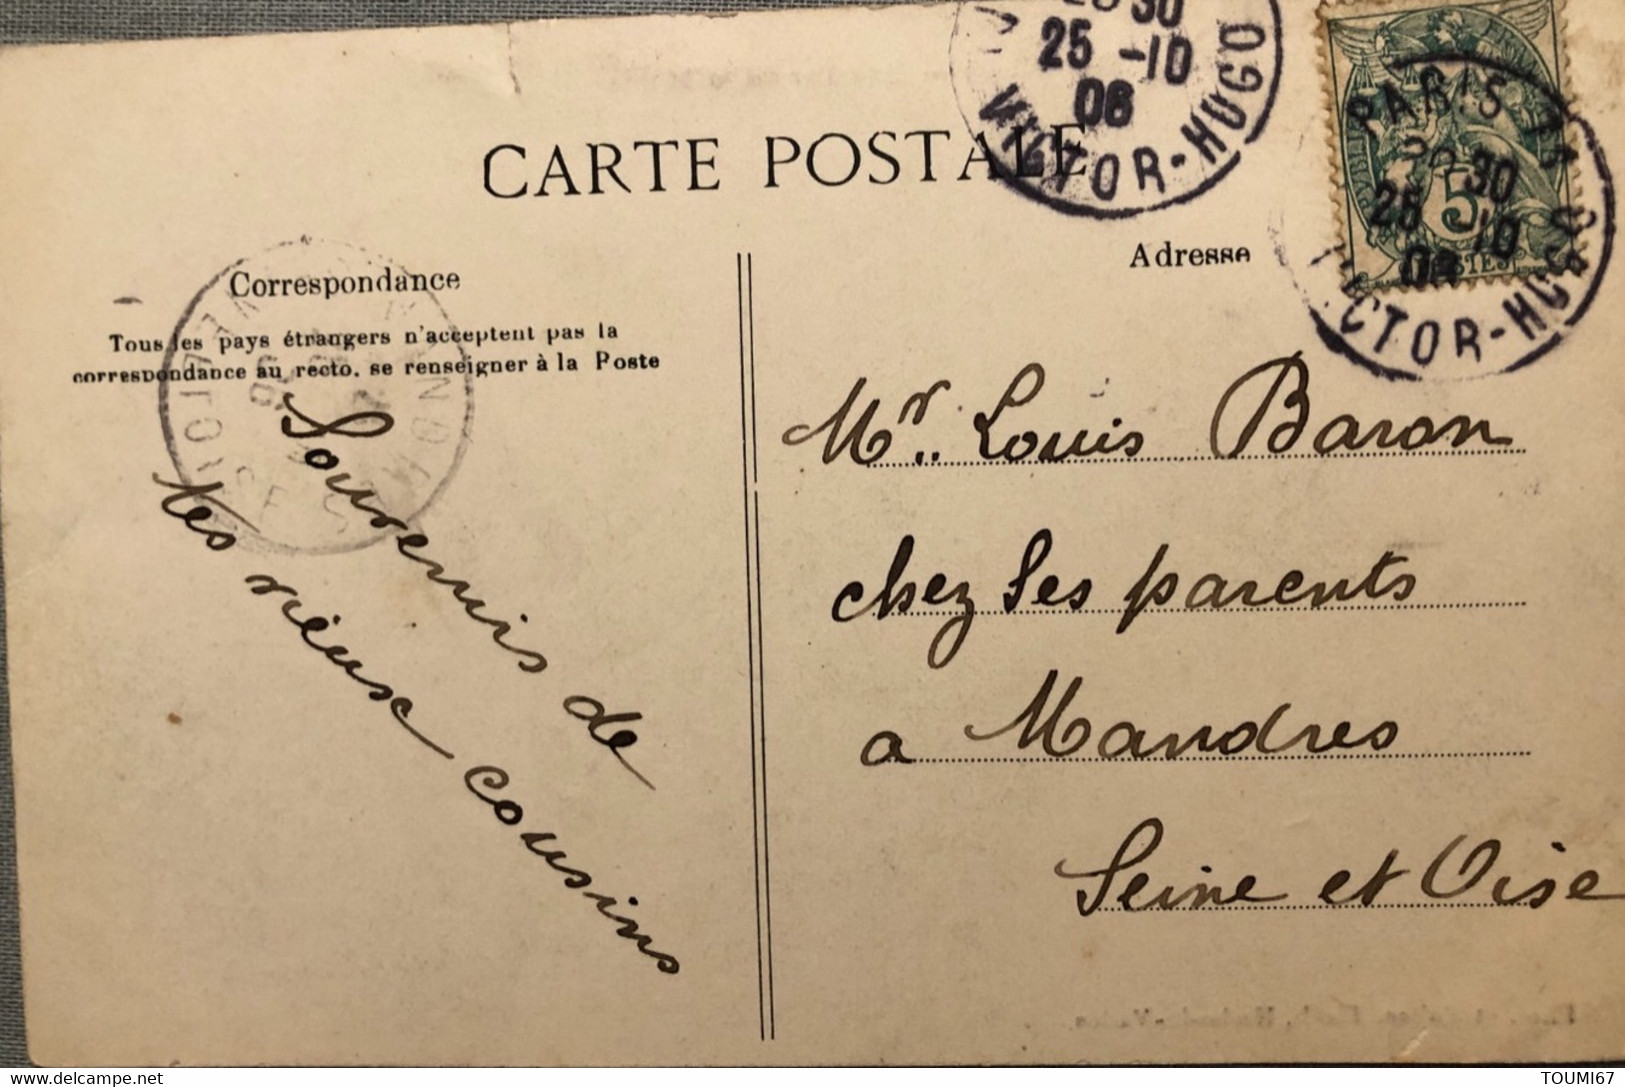 CARTE POSTALE
30
25 -10
06
VICTOR-HUGO
PARIS
30
25 10
06
VICTOR-HUGO
5
POSTES
Correspondance
Tous les pays étrangers n'acceptent pas la
correspondance au recto, se renseigner à la Poste
Adresse
Souvenirs de
tes vieux cousins
Mr. Louis Baron
chez ses parents
a Mandres
Seine et Oise
delcampe.net
TOUMI67